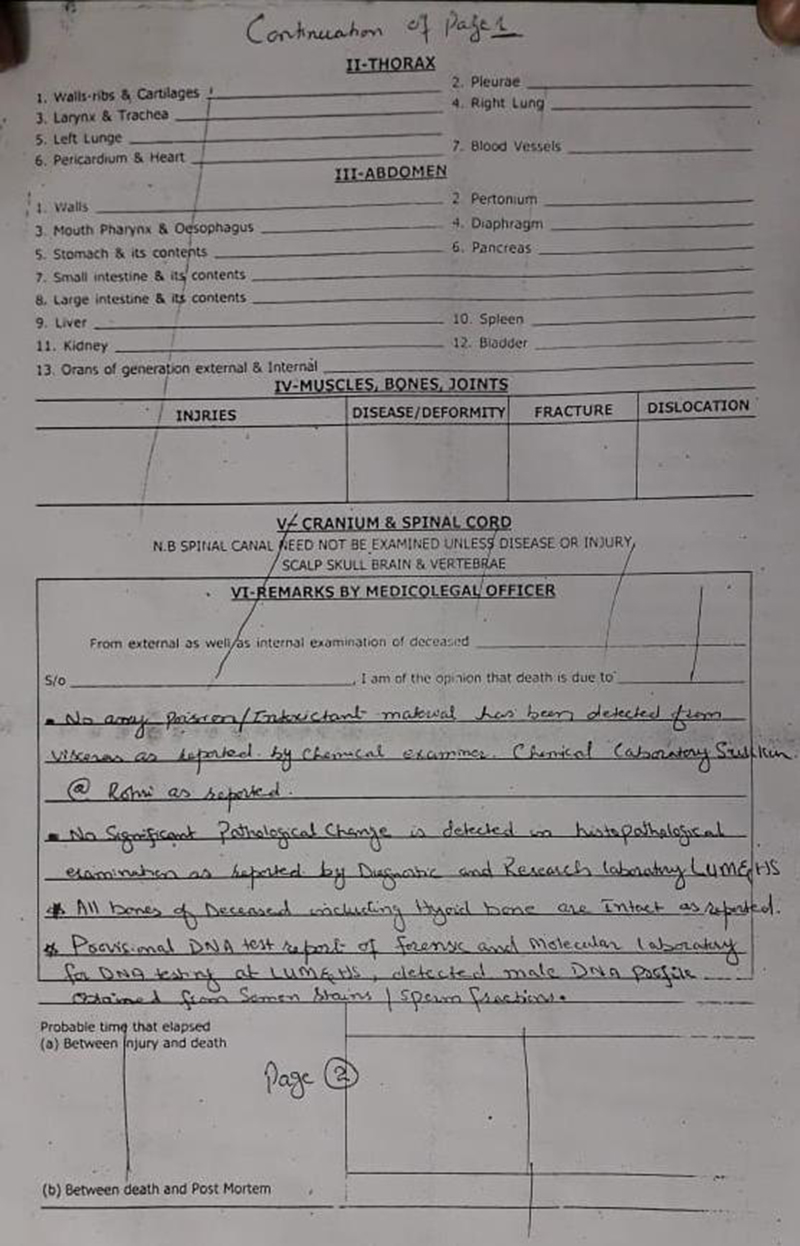 Continuation of Page 1
II-THORAX
1. Walls-ribs & Cartilages
2. Pleurae
3. Larynx & Trachea
4. Right Lung
5. Left Lunge
6. Pericardium & Heart
7. Blood Vessels
III-ABDOMEN
1. Walls
2. Pertonium
3. Mouth Pharynx & Oesophagus
4. Diaphragm
5. Stomach & its contents
6. Pancreas
7. Small intestine & its contents
8. Large intestine & its contents
9. Liver
10. Spleen
11. Kidney
12. Bladder
13. Orans of generation external & Internal
IV-MUSCLES, BONES, JOINTS
INJRIES DISEASE/DEFORMITY FRACTURE DISLOCATION
V- CRANIUM & SPINAL CORD
N.B SPINAL CANAL NEED NOT BE EXAMINED UNLESS DISEASE OR INJURY,
SCALP SKULL BRAIN & VERTEBRAE
VI-REMARKS BY MEDICOLEGAL OFFICER
From external as well as internal examination of deceased
S/o , I am of the opinion that death is due to
No any Poision/Intoxictant material has been detected from
Visceras as reported by Chemical examiner. Chemical Laboratory
@ Rohri as reported.
No Significant Pathological Change is detected in histopathological
examination as reported by Diagnostic and Research laboratory LUM&HS
* All bones of Deceased including Hyoid bone are Intact as reported.
* Provisional DNA test report of forensic and Molecular laboratory
for DNA testing at LUM&HS, detected male DNA profile
Obtained from Semen Stains / Sperm fractions.
Probable time that elapsed
(a) Between injury and death
Page 2
(b) Between death and Post Mortem